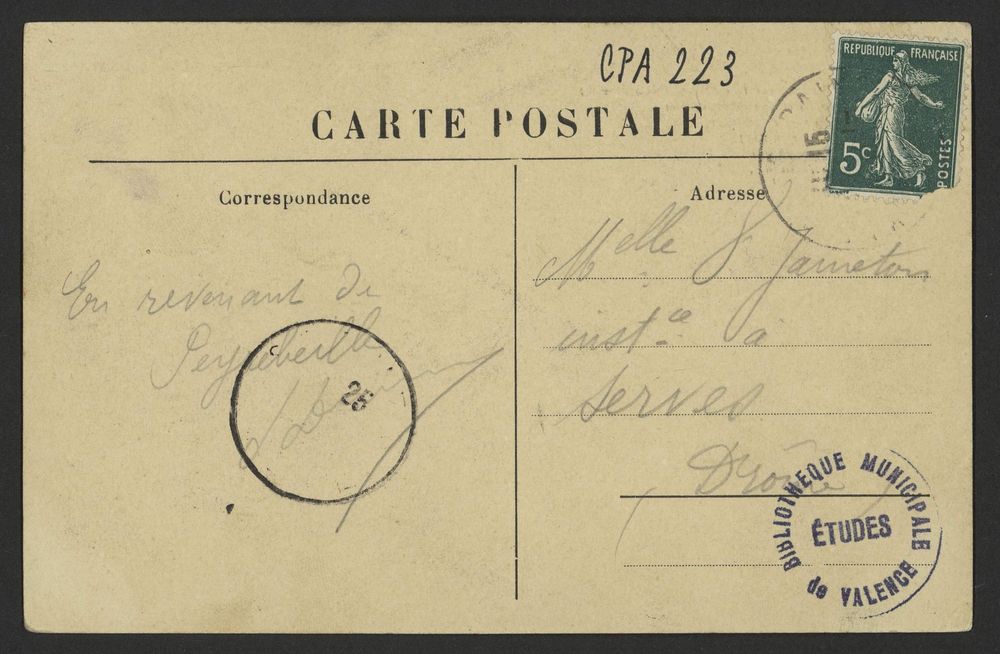 CPA 223
RÉPUBLIQUE FRANÇAISE
5c
POSTES
15
CARTE POSTALE
Correspondance
En revenant de
Peyrebeille
25
Adresse
Melle J. Jameton
instce à
Serves
Drôme
BIBLIOTHEQUE MUNICIPALE
ÉTUDES
de VALENCE